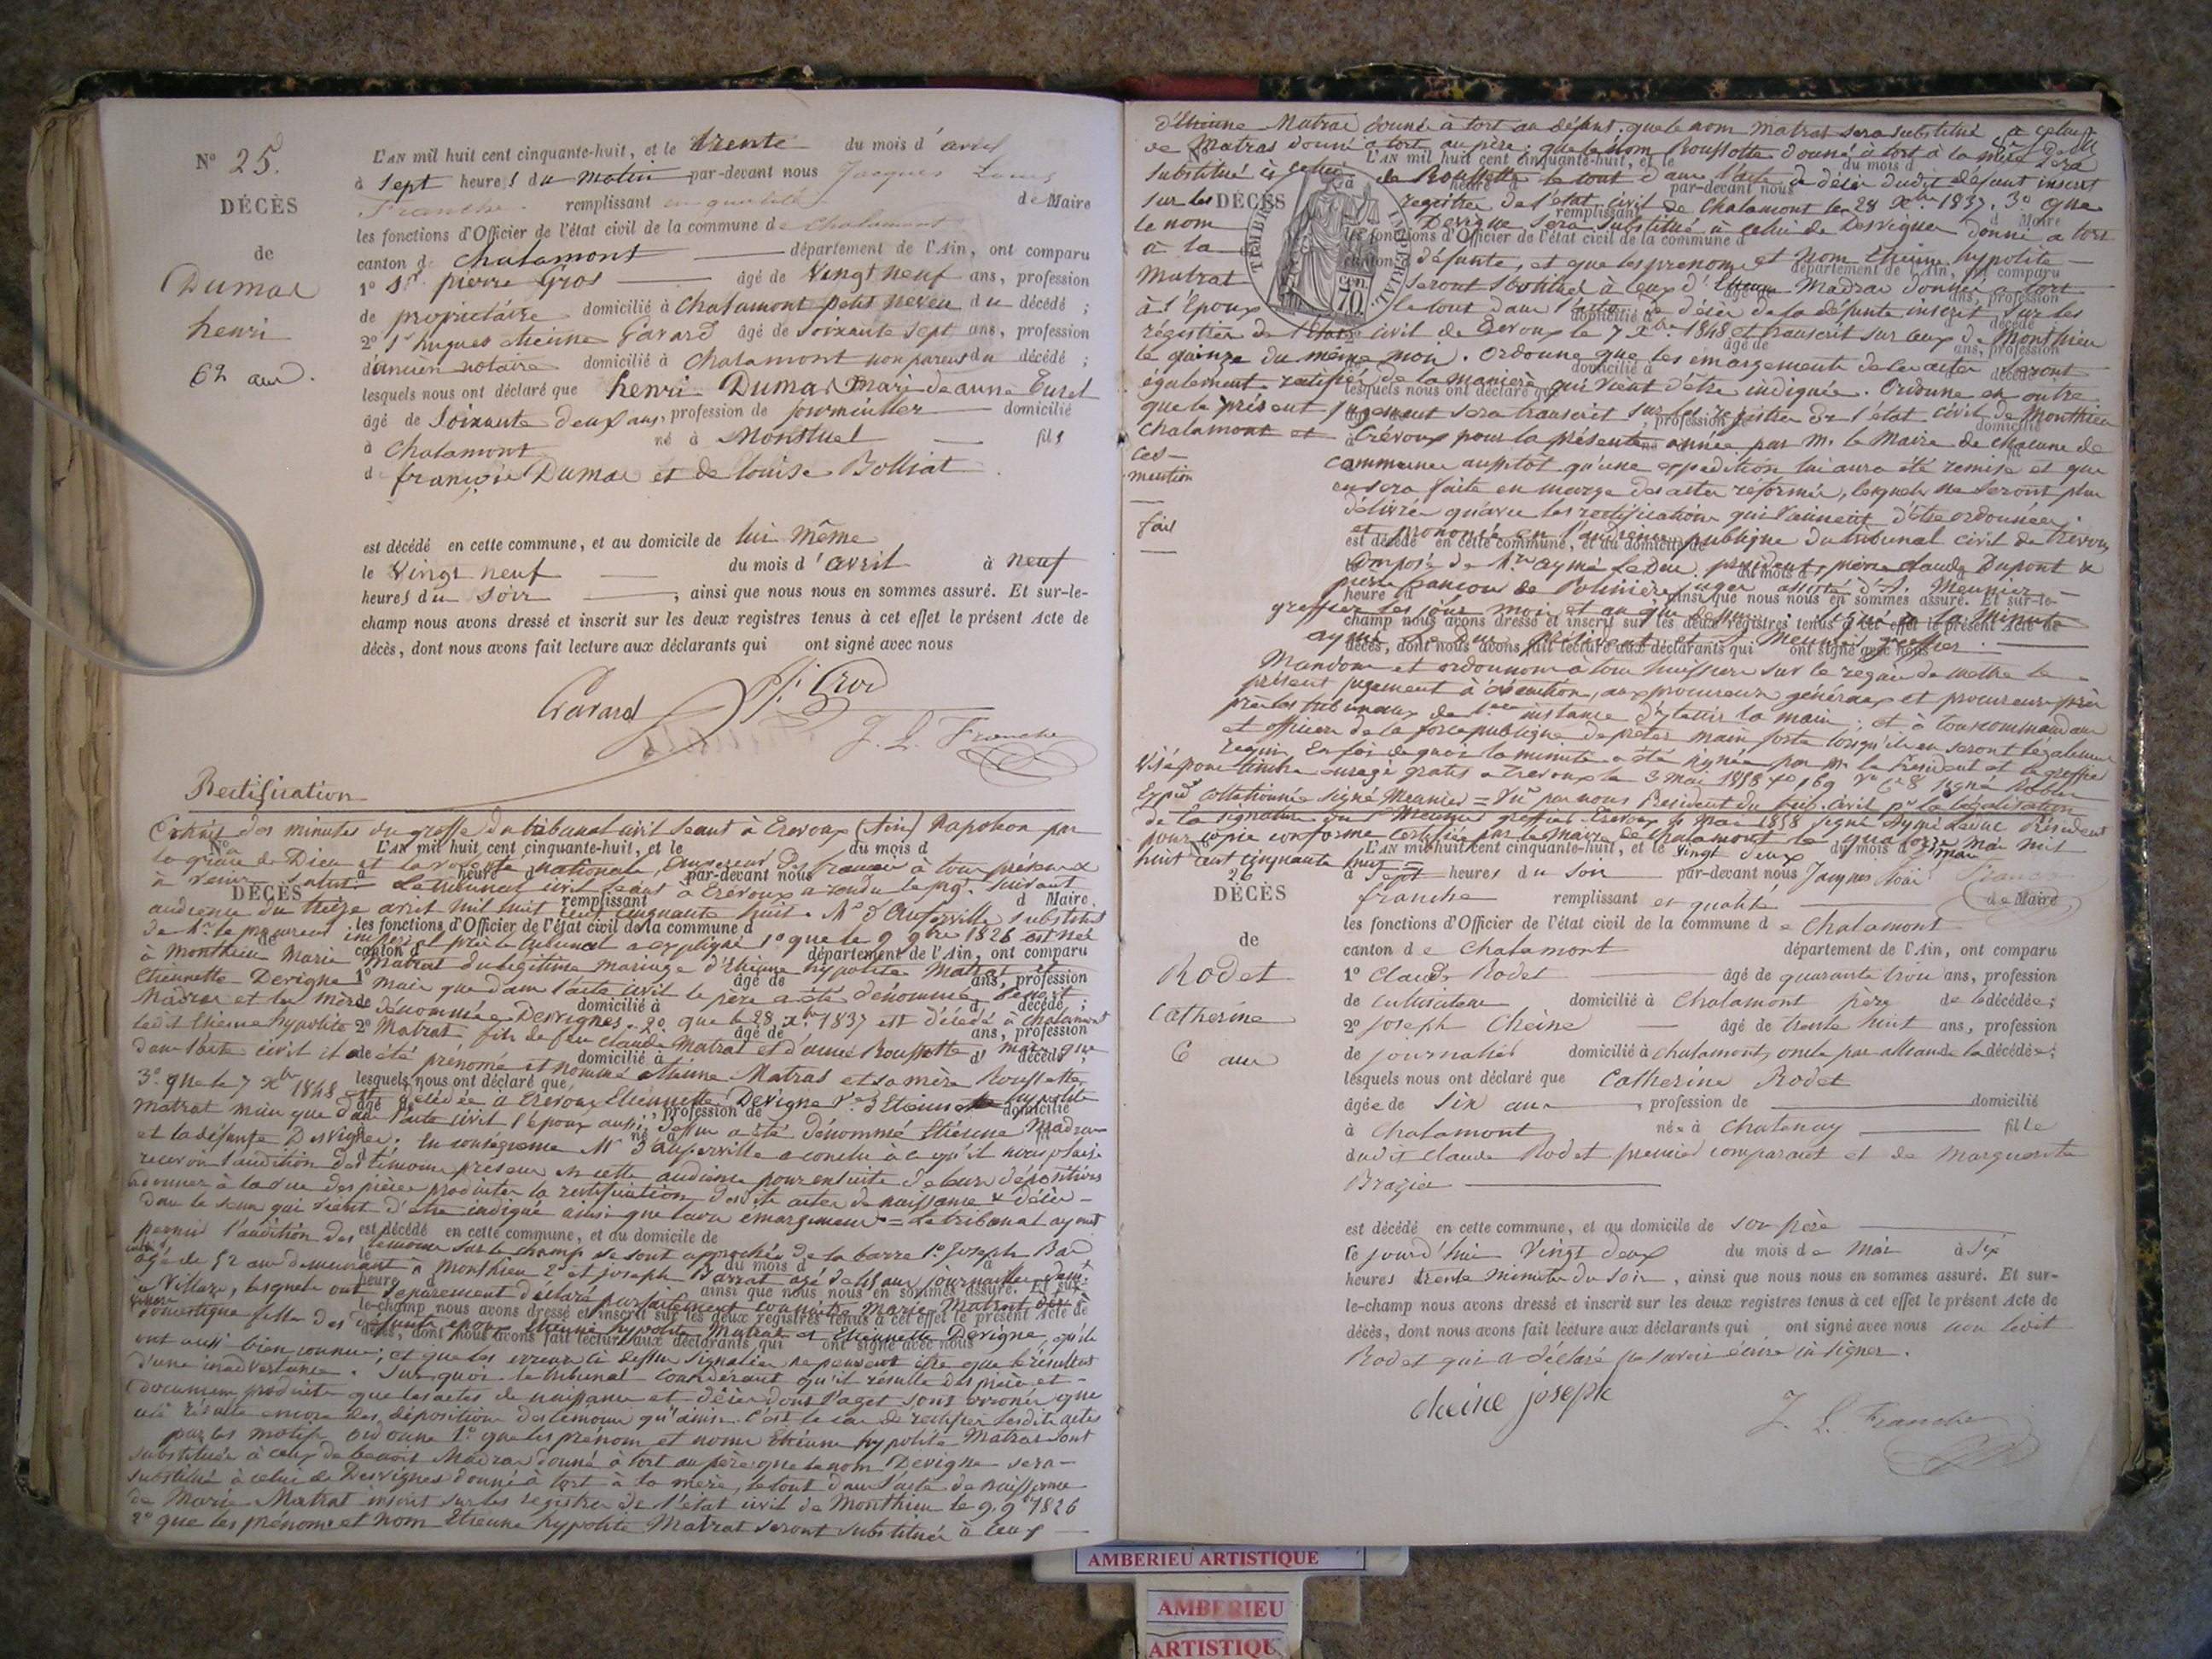 N° 25.
DÉCÈS
de
Dumas
henri
62 ans.
L'AN mil huit cent cinquante-huit, et le trente du mois d'avril
à sept heures du matin par-devant nous Jacques Louis
Franche remplissant en qualité de Maire
les fonctions d'Officier de l'état civil de la commune de Chalamont
canton de Chalamont département de l'Ain, ont comparu
1° Sr pierre Gros âgé de vingt neuf ans, profession
de propriétaire domicilié à Chalamont petit neveu du décédé ;
2° Sr hugues étienne Gavard âgé de soixante sept ans, profession
d'ancien notaire domicilié à Chalamont non parent du décédé ;
lesquels nous ont déclaré que henri Dumas mari de anne
âgé de soixante deux ans, profession de domicilié
à Chalamont né à Montluel fils
de françois Dumas et de louise Bolliat
est décédé en cette commune, et au domicile de lui même
le vingt neuf du mois d'avril à neuf
heures du soir, ainsi que nous nous en sommes assuré. Et sur-le-
champ nous avons dressé et inscrit sur les deux registres tenus à cet effet le présent Acte de
décès, dont nous avons fait lecture aux déclarants qui ont signé avec nous
Gavard P. Gros
J. L. Franche
Rectification
Extrait des minutes du greffe du tribunal civil séant à Trévoux (Ain) Napoléon par
la grâce de Dieu et la volonté nationale, Empereur des français à tous présents
à venir salut. Le tribunal civil séant à Trévoux a rendu le jugt suivant
audience du treize avril mil huit cent cinquante huit. substitut
de Mr le procureur impérial près le tribunal a expliqué 1° que le 9 9bre 1826 est née
à Monthieu Marie Matrat du légitime mariage d'Etienne hypolite Matrat et
Etiennette Devigne mais que dans l'acte civil le père a été dénommé
Madras et la mère dénommée Desvignes. 2° que le 28 Xbre 1837 est décédé à Chalamont
ledit Etienne hypolite Matrat, fils de feu Claude Matrat et d'
dans l'acte civil il a été prénommé et nommé Etienne Matras et sa mère Roussette
3° que le 7 Xbre 1848 est décédée à Trévoux Etiennette Devigne Ve d'Etienne hypolite
Matrat mais que dans l'acte civil l'époux a été dénommé Etienne Madras
et la défunte Desvignes; en conséquence Mr a conclu à ce qu'il nous plaise
recevoir l'audition des témoins présens en cette audience pour ensuite de leurs dépositions
ordonner à la vue des pièces produites la rectification desdits actes de naissance & décès
dans le sens qui vient d'être indiqué ainsi que leurs émargemens = Le tribunal ayant
permis l'audition des témoins sur le champ se sont approchés de la barre 1° Joseph
âgé de 52 ans demeurant à Monthieu 2° et joseph Barrat âgé de ans journalier
à Villars, lesquels ont séparément déclaré parfaitement connaître Marie Matrat
domestique fille des défunts époux Etienne hypolite Matrat et Etiennette Devigne, qu'ils
ont aussi bien connus; et que les erreurs ci dessus signalées ne peuvent être que le résultat
d'une inadvertance. Sur quoi le tribunal considérant qu'il résulte des pièces et
documens produits que les actes de naissance et décès dont s'agit sont erronés que
cela résulte encore des dépositions des témoins qu'ainsi c'est le cas de rectifier lesdits actes
par ces motifs ordonne 1° que les prénoms et noms Etienne hypolite Matrat sont
substitués à ceux de benoit Madras donné à tort au père que le nom Devigne sera
substitué à celui de Desvignes donné à tort à la mère, le tout dans l'acte de naissance
de Marie Matrat inscrit sur les registres de l'état civil de Monthieu le 9 9bre 1826
2° que les prénoms et nom Etienne hypolite Matrat seront substitués à ceux
d'Etienne Matras donné à tort au défunt; que le nom Matrat sera substitué à celui
de Matras donné à tort au père; que le nom Roussotte donné à tort à la mère sera
substitué à celui de Roussette le tout dans l'acte de décès dudit défunt inscrit
sur les registres de l'état civil de Chalamont le 28 Xbre 1837. 3° que
le nom Devigne sera substitué à celui de Desvignes donné à tort
à la défunte, et que les prénoms et nom Etienne hypolite
Matrat seront substitués à ceux d'Etienne Madras donnés à tort
à l'époux le tout dans l'acte de décès de la défunte inscrit sur les
régistres de l'état civil de Trévoux le 7 Xbre 1848 et transcrit sur ceux de Monthieu
le quinze du même mois. Ordonne que les émargements de ces actes seront
également rectifiés de la manière qui vient d'être indiquée. Ordonne en outre
que le présent jugement sera transcrit sur les registres de l'état civil de Monthieu
Chalamont et Trévoux pour la présente année par Mr le Maire de chacune de
ces communes aussitôt qu'une expédition lui aura été remise et que
mention en sera faite en marge des actes réformés, lesquels ne seront plus
délivrés qu'avec les rectifications qui viennent d'être ordonnées.
fait et prononcé en l'audience publique du tribunal civil de Trévoux
composé de Mrs aymé Leduc, président, pierre claude Dupont &
pierre françois de Polinière juges assisté d'A. Meunier
greffier les jour, mois et an que dessus la minute
aymé Le Duc président et A. Meunier greffier.
Mandons et ordonnons à tous huissiers sur le requis de mettre le
présent jugement à exécution, aux procureurs généraux et procureurs près
près les tribunaux de 1ere instance d'y tenir la main; et à tous commandans
et officiers de la force publique de prêter main forte lorsqu'ils en seront légalement
requis. En foi de quoi la minute a été signée par Mr le Président et le greffier
Visé pour timbre enregé gratis à Trévoux le 3 mai 1858 signé
Expon collationnée signé Meunier = Vu par nous Président du trib. civil pr la légalisation
de la signature du Sr Meunier greffier Trévoux mai 1858 signé Aymé Leduc Président
pour copie conforme certifiée par le maire de Chalamont le quatorze mai mil
huit cent cinquante huit =
TIMBRE IMPÉRIAL
70 CEN.
N° 26
DÉCÈS
de
Rodet
Catherine
6 ans
L'AN mil huit cent cinquante-huit, et le vingt deux du mois de mai
à sept heures du soir par-devant nous Jacques Louis
franche remplissant en qualité de Maire
les fonctions d'Officier de l'état civil de la commune de Chalamont
canton de Chalamont département de l'Ain, ont comparu
1° Claude Rodet âgé de quarante trois ans, profession
de cultivateur domicilié à Chalamont père de la décédée ;
2° joseph Cheine âgé de trente huit ans, profession
de journalier domicilié à Chalamont, oncle par alliance de la décédée ;
lesquels nous ont déclaré que Catherine Rodet
âgée de six ans, profession de domicilié
à Chalamont née à Chatenay fille
dudit Claude Rodet premier comparant et de Marguerite
Brazier
est décédé en cette commune, et au domicile de son père
ce jourd'hui vingt deux du mois de mai à six
heures trente minutes du soir, ainsi que nous nous en sommes assuré. Et sur-
le-champ nous avons dressé et inscrit sur les deux registres tenus à cet effet le présent Acte de
décès, dont nous avons fait lecture aux déclarants qui ont signé avec nous non ledit
Rodet qui a déclaré ne savoir écrire ni signer.
cheine joseph
J. L. Franche
AMBERIEU ARTISTIQUE
AMBERIEU
ARTISTIQUE